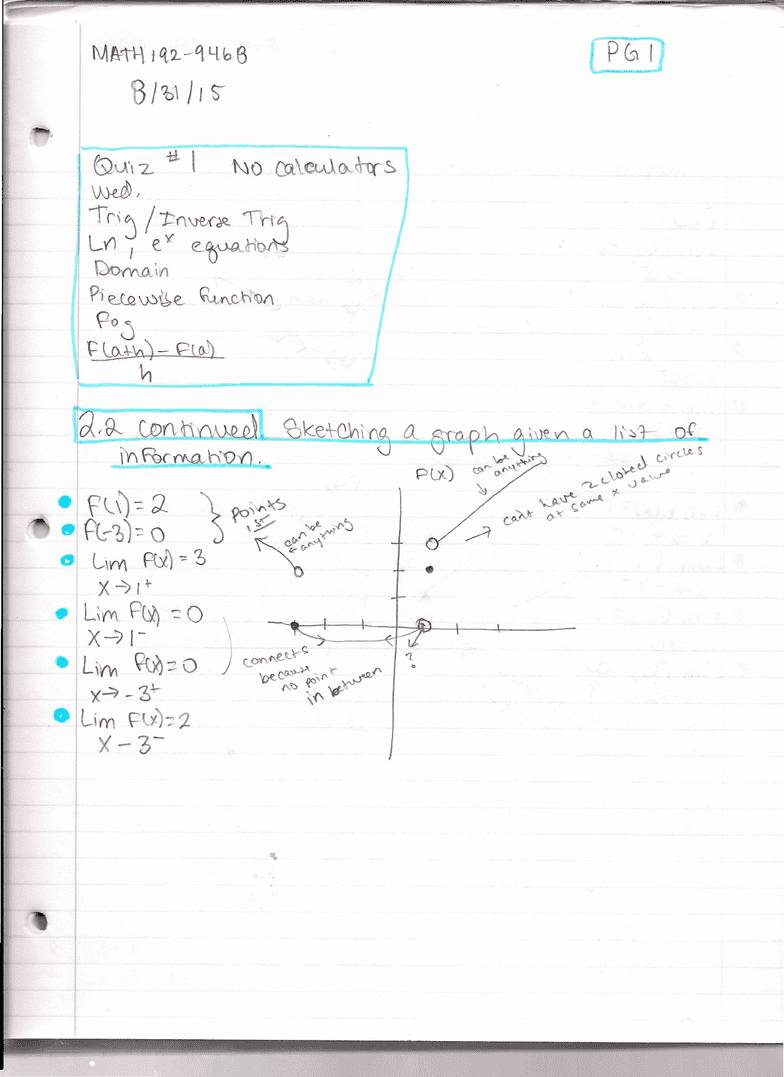 MATH 192-946B
PG 1
8/31/15
Quiz #1 No calculators
Wed.
Trig / Inverse Trig
Ln, eˣ equations
Domain
Piecewise function
fog
F(a+h) - F(a)
h
2.2 continued Sketching a graph given a list of
information.
F(x) can be
anything
can't have 2 closed circles
at same x value
F(1) = 2
F(-3) = 0
Points
1st
can be
anything
Lim F(x) = 3
x → 1⁺
Lim F(x) = 0
x → 1⁻
Lim F(x) = 0
x → -3⁺
Lim F(x) = 2
x - 3⁻
connects
because
no point
in between
?